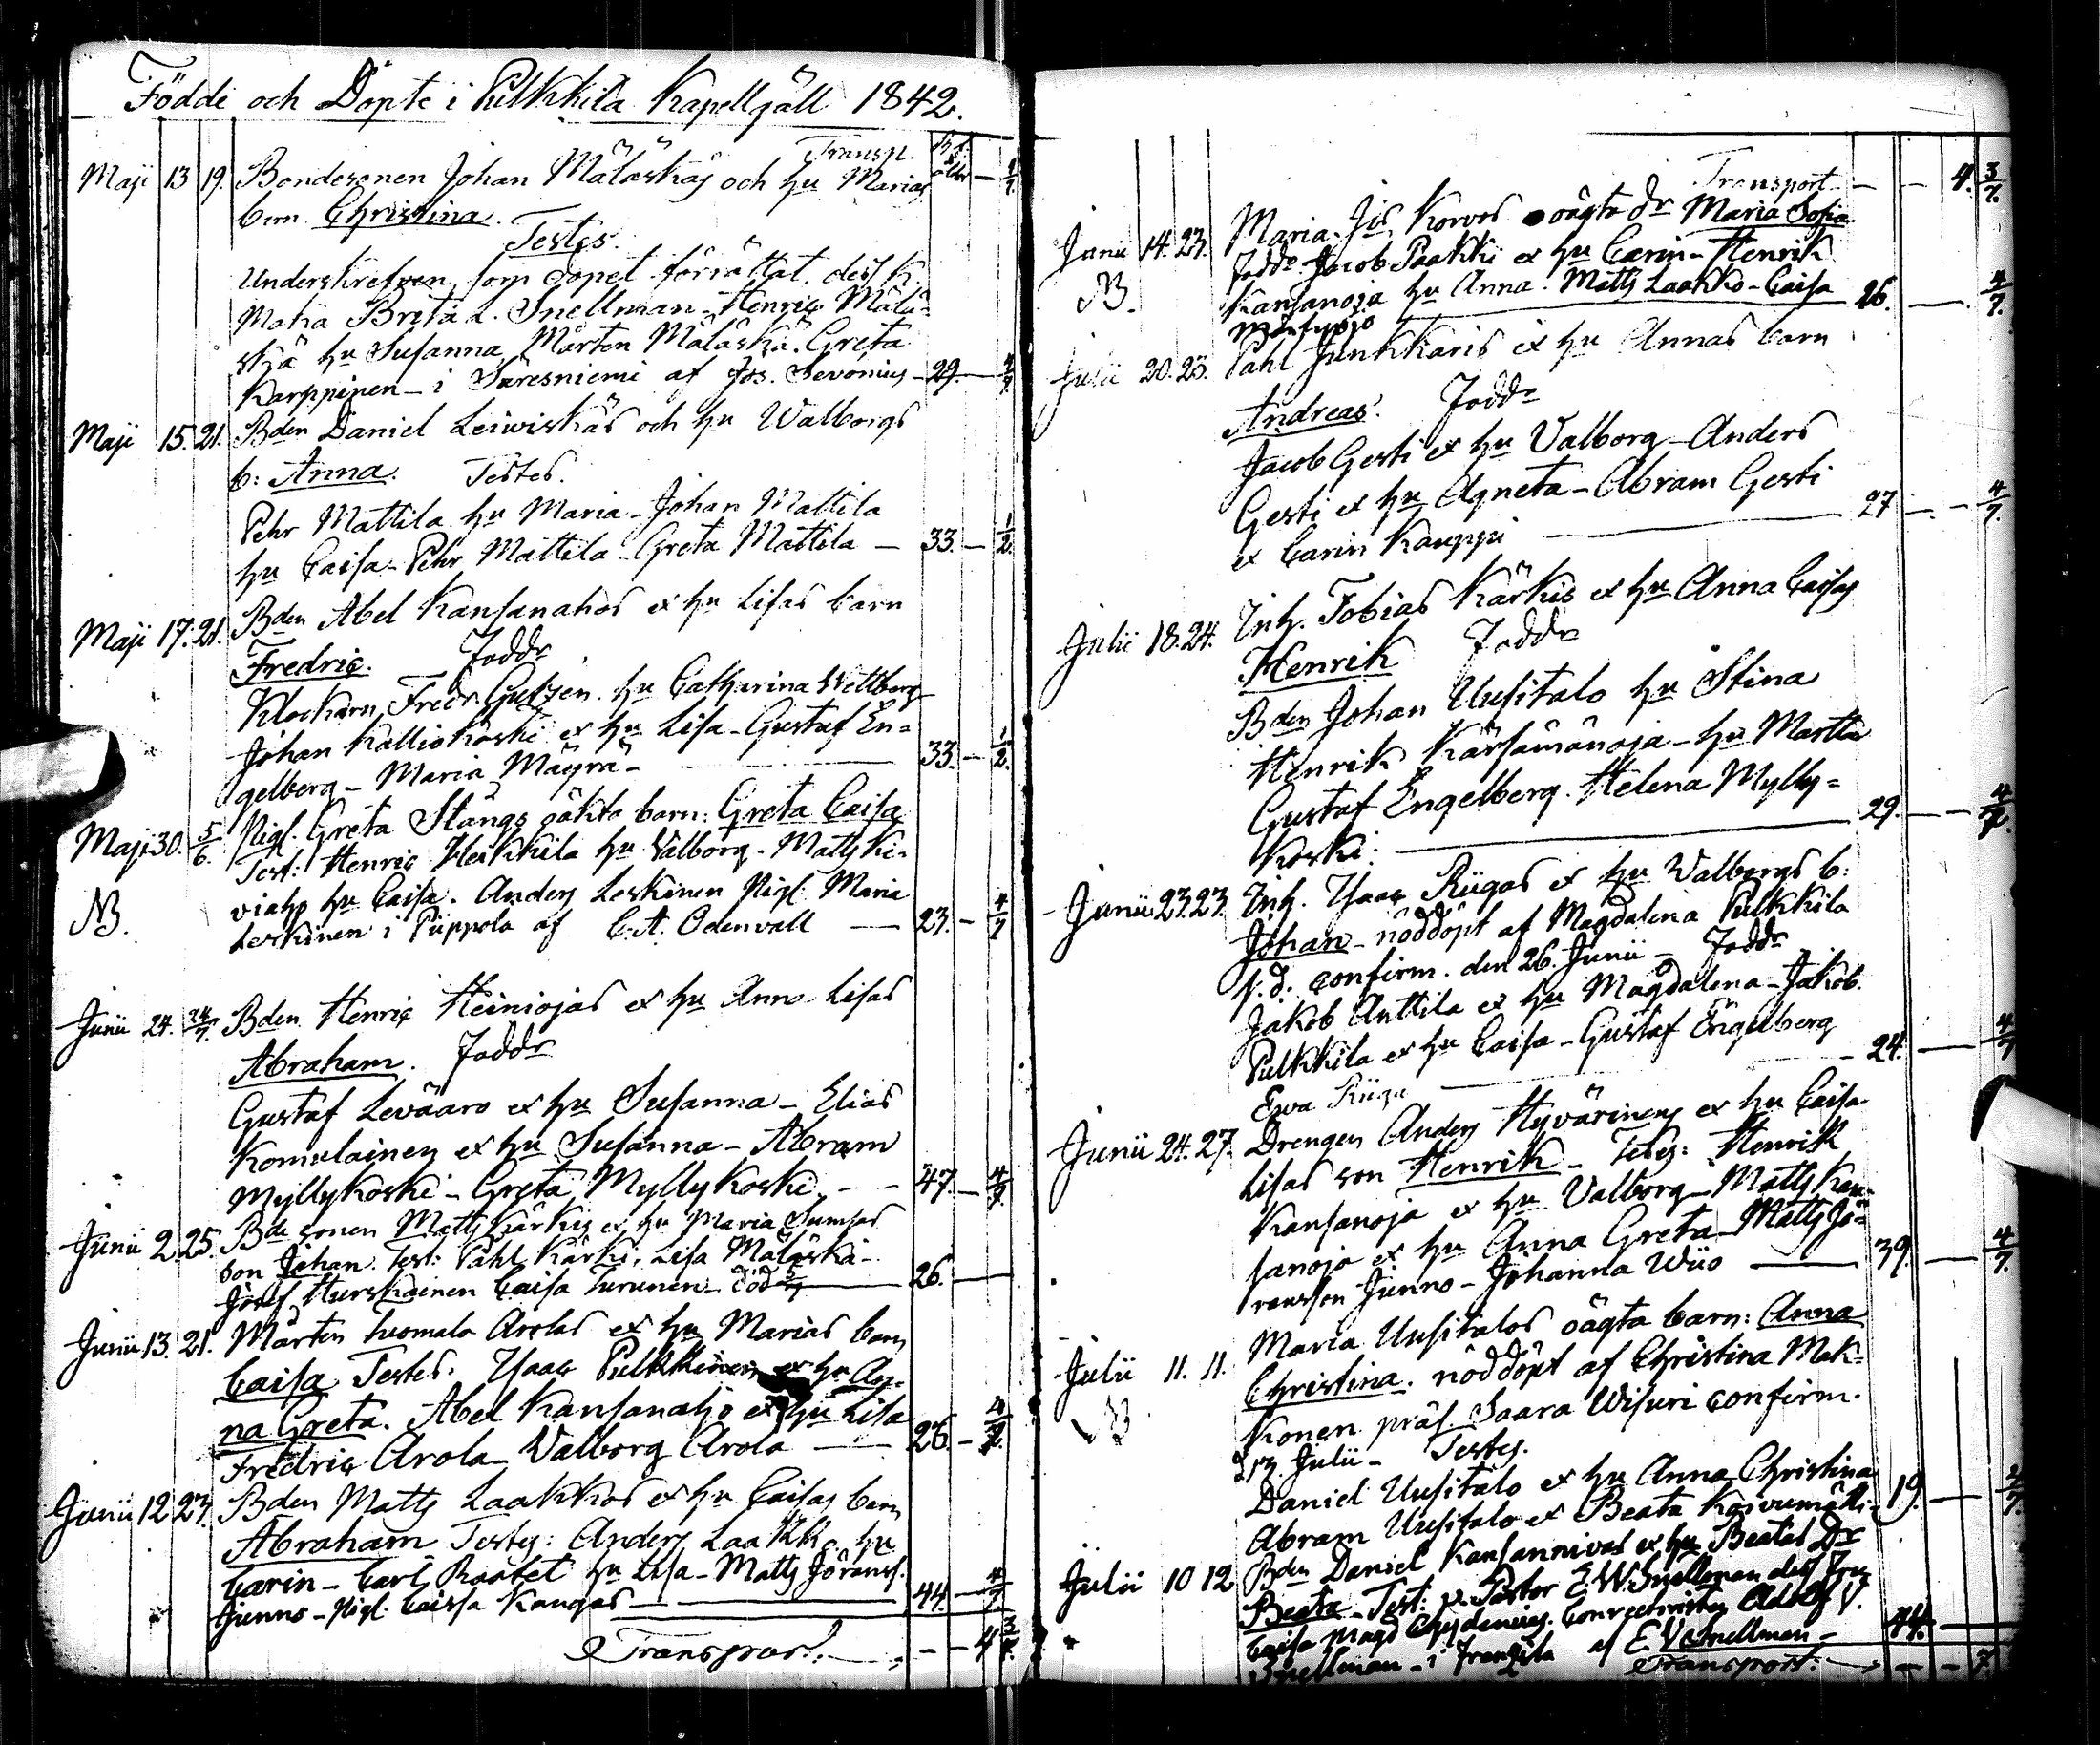 Födde och Döpte i Pulkkila Kapellgäll 1842.
Transp.
Maji 13 19. Bondesonen Johan Mäläskäs och hu Marias
barn Christina.
Testes.
Underskrefven, som dopet förrättat, dess k.
Maka Brita L. Snellman - Henric Mälä=
skä hu Susanna, Mårten Mäläskä. Greta
Karppinen - i Säresniemi af Jos. Sevonius - 29. - 4/7
Maji 15. 21. Bden Daniel Leiwiskäs och hu Walborgs
b: Anna. Testes.
Pehr Mattila hu Maria - Johan Mattila
hu Caisa - Pehr Mattila - Greta Mattila - 33. - 1/2
Maji 17. 21. Bden Abel Kansanahos et hu Lisas barn
Fredric. Faddr
Klockarn Fredr. Gutzen. hu Catharina Wettberg
Johan Kalliokoski et hu Lisa - Gustaf En=
gelberg - Maria Mäyrä - 33. - 1/2
Maji 30. 5/6. Pigl. Greta Stångs oäkta barn: Greta Caisa
Test: Henric Heikkila hu Valborg - Matts Ki=
viaho hu Caisa. Anders Leskinen Pigl: Maria
NB. Leskinen i Piippola af C. A. Odenvall - 23. - 4/7
Junii 24. 24/7. Bden Henric Heiniojas et hu Anna Lisas
Abraham. Faddr
Gustaf Leväaro et hu Susanna - Elias
Komulainen et hu Susanna - Abram
Myllykoski - Greta Myllykoski - - 47. - 4/7
Junii 2. 25. Bde sonen Matts Kärkis et hu Maria
son Johan. Test: Påhl Kärki, Lisa Mäläskä -
Josef Hurskainen Caisa Turunen - död 26. -
Junii 13. 21. Mårten Luomala Arolas et hu Marias barn
Caisa Testes: Isaac Pulkkinen et hu An=
na Greta. Abel Kansanaho et hu Lisa
Fredric Arola - Valborg Arola - 26. - 4/7.
Junii 12 27. Bden Matts Laakkos et hu Caisas barn
Abraham Testes: Anders Laakko hu
Carin - Carl Raatel hu Lisa - Matts Jöranss.
Junno - Pigl. Caissa Kangas - 44. - 4/7
Transport. - - 4 3/7.
Transport - - 4. 3/7.
Junii 14. 23. Maria Korvos oägta dr Maria Sofia
Faddr Jacob Paakki et hu Carin - Henrik
NB. Kansanoja hu Anna. Matts Laakko - Caisa
26. - 4/7.
Julii 20. 23. Påhl Junkkaris et hu Annas barn
Andreas. Faddr
Jacob Gesti et hu Valborg - Anders
Gesti et hu Agneta - Abram Gesti
et Carin Kauppi - 27 - 4/7.
Julii 18. 24. Inh. Tobias Kärkis et hu Anna Caisas
Henrik Faddr
Bden Johan Uusitalo hu Stina
Henrik Kärsämänoja - hu Martta
Gustaf Engelberg. Helena Mylly=
koski: - 29. - 4/7.
Junii 23. 23. Inh. Isaac Riigas et hu Walborgs b:
Johan - nöddöpt af Magdalena Pulkkila
s. d. confirm. den 26. Junii - Faddr
Jakob Anttila et hu Magdalena - Jakob.
Pulkkila et hu Caisa - Gustaf Engelberg
Ewa Riiga - 24. - 4/7
Junii 24. 27. Drengen Anders Hyvärinens et hu Caisa
Lisas son Henrik - Testes: Henrik
Kansanoja et hu Valborg - Matts Kan=
sanoja et hu Anna Greta - Matts Jö=
ransson Junno - Johanna Wiio - 39. - 4/7.
Julii 11. 11. Maria Uusitalos oägta barn: Anna
Christina. nöddöpt af Christina Mak=
NB konen präs. Saara Wisuri confirm.
Julii - Testes.
Daniel Uusitalo et hu Anna Christina
Abram Uusitalo et Beata Koivumäki - 19. - 4/7.
Julii 10 12 Bden Daniel Kansannivas et hu Beatas Dr
Beata - Test: v. Pastor E. W. Snellman dess Fru
Caisa Magd Chydenius. Conrectorisken Adolf V.
Snellman - i Frantsila af E V Snellman - 44. -
Transport. - - 7.